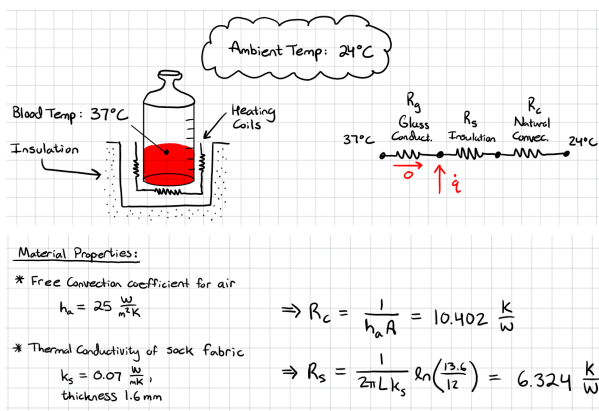 Ambient Temp: 24°C
Blood Temp: 37°C
Heating
Coils
Insulation
Rg
Glass
Conduct.
Rs
Insulation
Rc
Natural
Convec.
37°C
24°C
0
q̇
Material Properties:
* Free Convection coefficient for air
hₐ = 25 W/m²K
⇒ Rc = 1/(hₐA) = 10.402 K/W
* Thermal Conductivity of sock fabric
ks = 0.07 W/mK,
thickness 1.6 mm
⇒ Rs = 1/(2πLks) ln(13.6/12) = 6.324 K/W